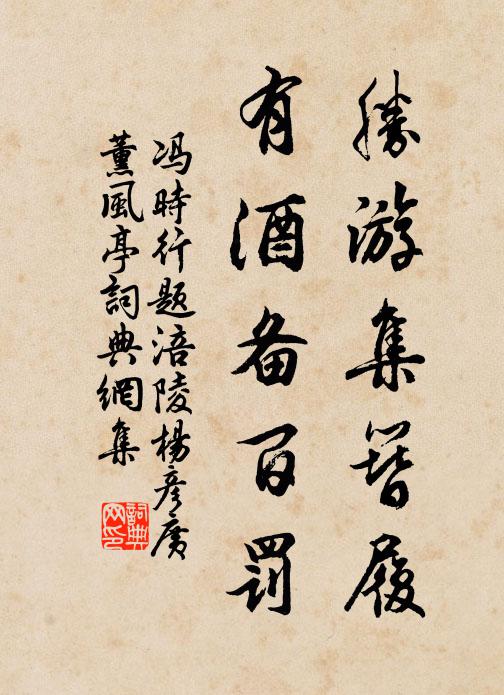 勝游集簪履
有酒备百罰
冯時行题涪陵楊彦廣
薰風亭詞典網集
詞典网印